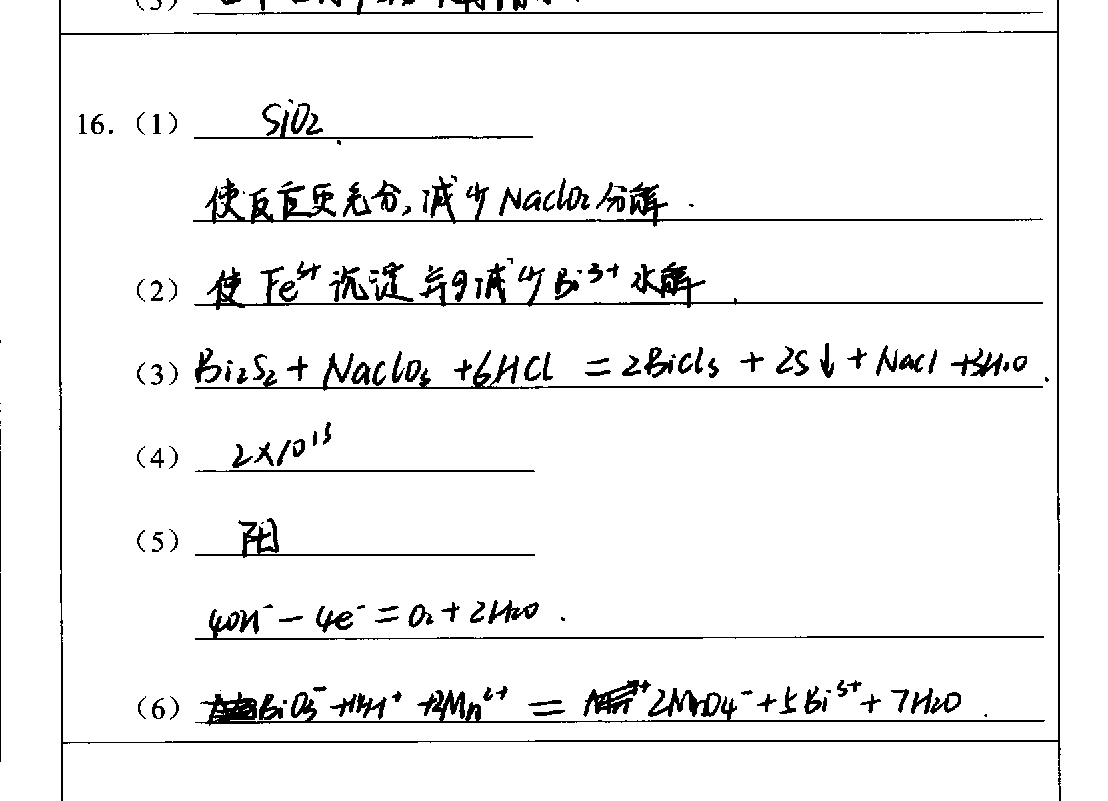 16.（1） SiO₂
使反应更充分,减少NaClO₂分解.
（2） 使 Fe³⁺ 沉淀 减少Bi³⁺水解
（3） Bi₂S₂ + NaClO₃ + 6HCl = 2BiCl₃ + 2S↓ + NaCl + 3H₂O.
（4） 2×10¹³
（5） 阳
4OH⁻ − 4e⁻ = O₂ + 2H₂O .
（6） BiO₃⁻ +14H⁺ +2Mn²⁺ = 2MnO₄⁻ + 5Bi³⁺ + 7H₂O .